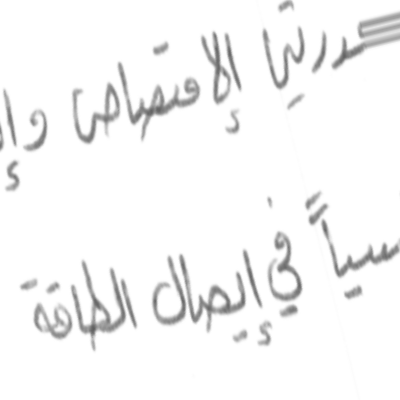 درتي الإمتصاص وإ
سياً في إيصال الطاقة